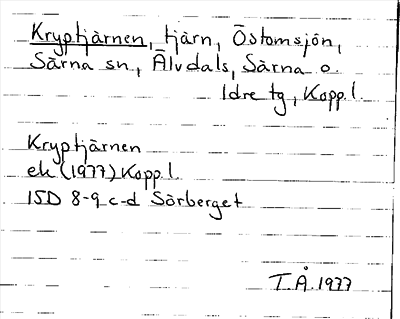 Kryptjärnen, tjärn, Östomsjön,
Särna sn, Älvdals, Särna o.
Idre tg, Kopp.l.
Kryptjärnen
ek (1977) Kopp.l.
15D 8-9 c-d Sörberget
T.Å. 1977